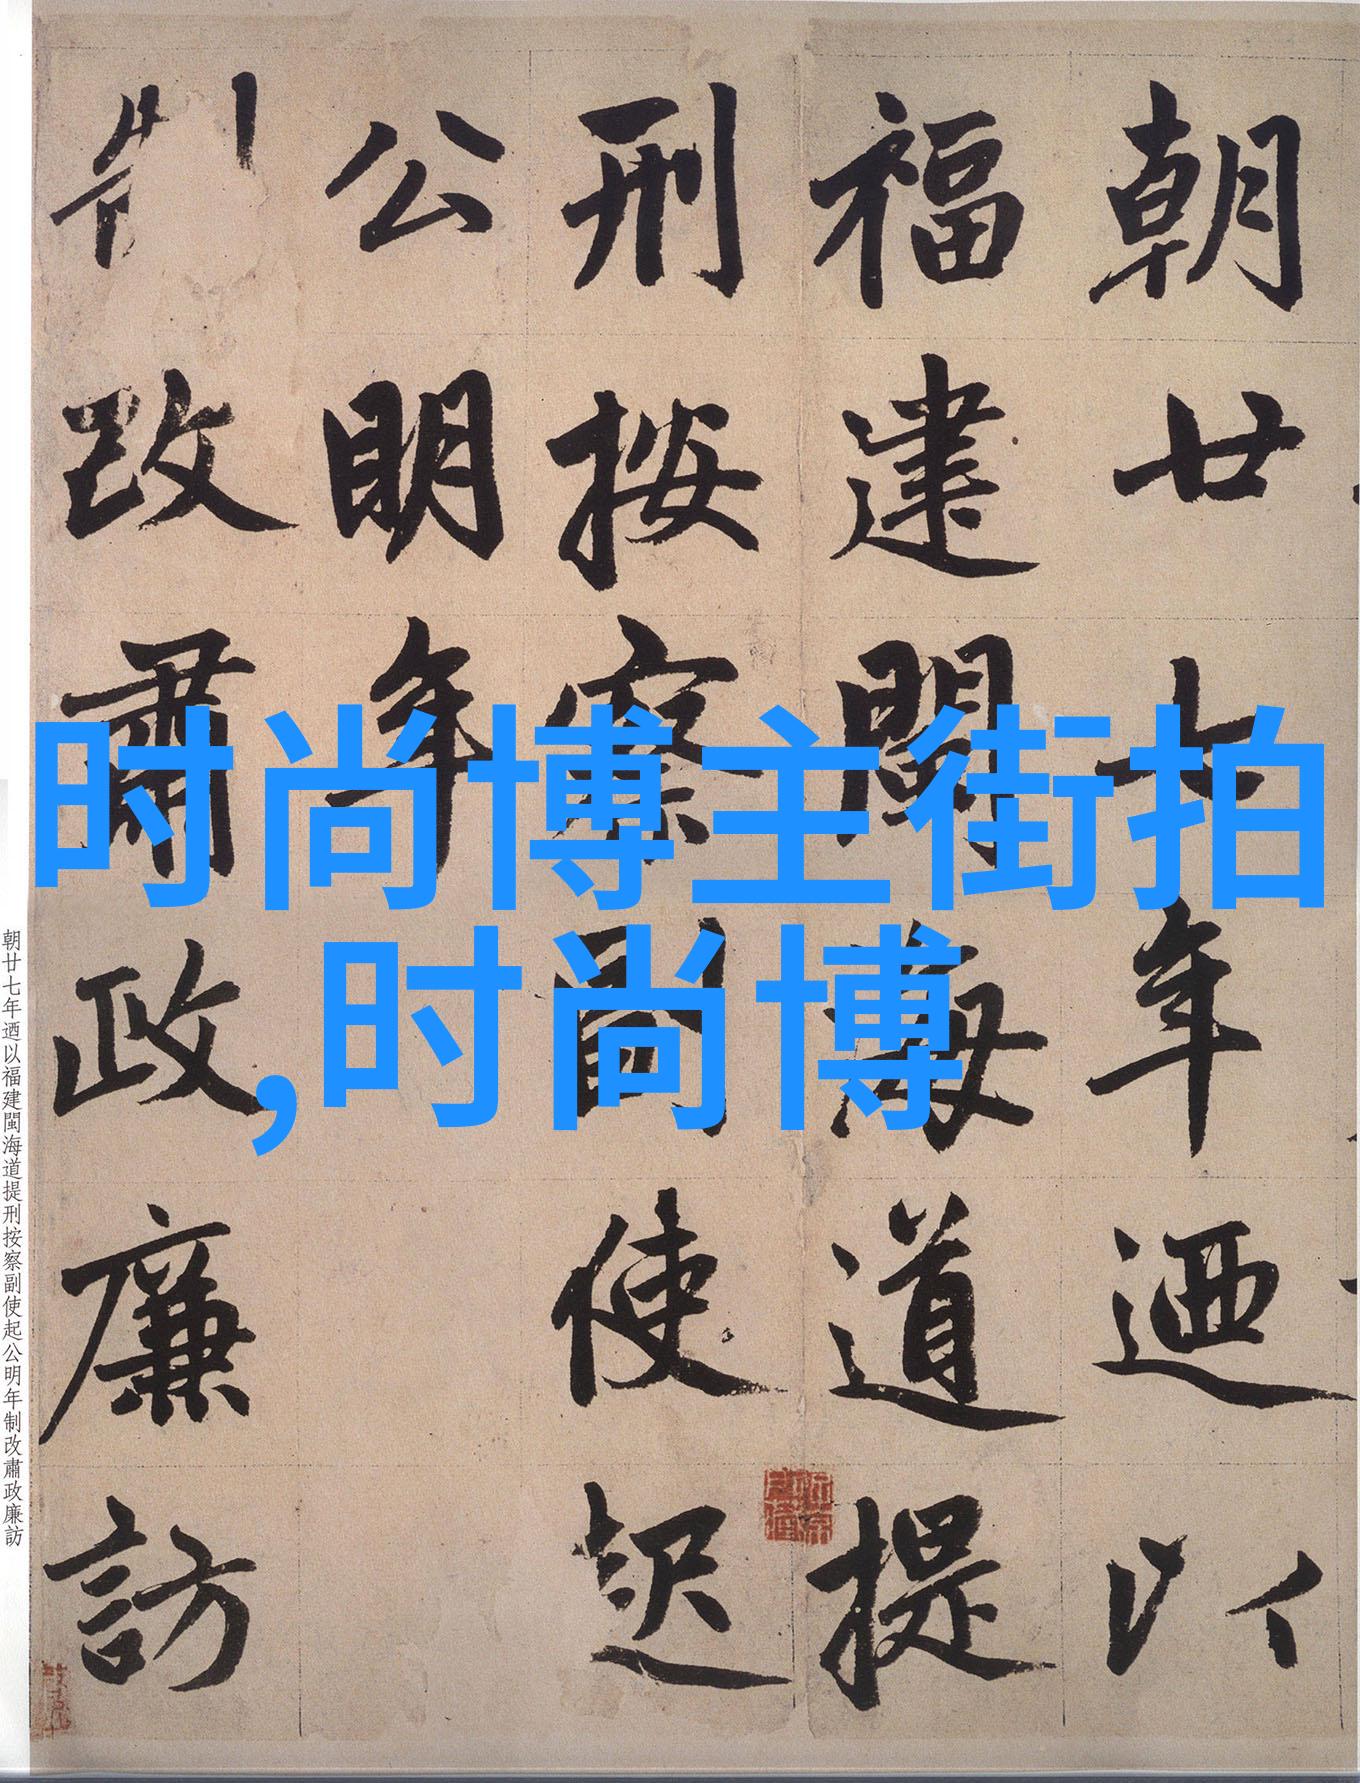 朝廿七年迺以
福建閩海道提
刑按察副使起
公明年
制改肅政廉訪
时尚博主街拍
,时尚博
朝廿七年迺以福建閩海道提刑按察副使起公明年制改肅政廉訪